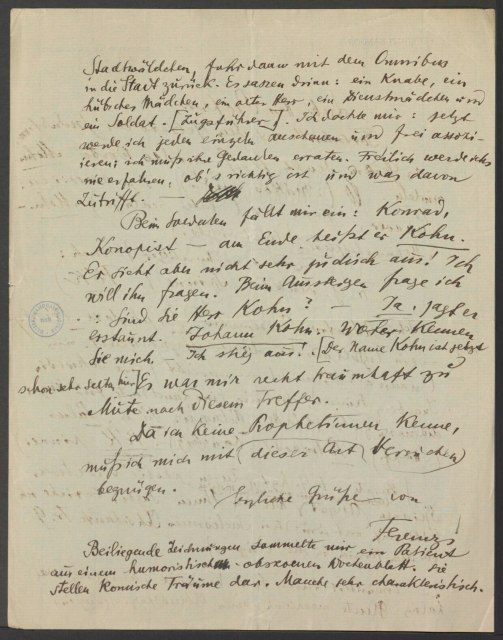 Stadtwäldchen, fuhr dann mit dem Omnibus
in die Stadt zurück. Es sassen drinn: ein Knabe, ein
hübsches Mädchen, ein alter Herr, ein Dienstmädchen und
ein Soldat. [Zugsführer]. Ich dachte mir: jetzt
werde ich jeden einzeln anschauen und frei assozi-
ieren; ich muss ihre Gedanken erraten. Freilich werde ichs
nie erfahren, ob's richtig ist und was davon
zutrifft. —
Beim Soldaten fällt mir ein: Konrad,
Konopist — am Ende heißt er Kohn.
Er sieht aber nicht sehr jüdisch aus! Ich
will ihn fragen. Beim Aussteigen frage ich
: Sind Sie Herr Kohn? — Ja. sagt er
erstaunt. Johann Kohn. Woher kennen
Sie mich — Ich stieg aus!. [Der Name Kohn ist jetzt
schon sehr selten hier] Es war mir recht traumhaft zu
Mute nach diesem Treffer.
Da ich keine Prophetinnen kenne,
muß ich mich mit dieser Art Versuchen
begnügen.
Herzliche Grüße von
Ferenczi
Beiliegende Zeichnungen sammelte mir ein Patient
aus einem humoristisch - obscoenen Wochenblatt. Sie
stellen komische Träume dar. Manche sehr charakteristisch.